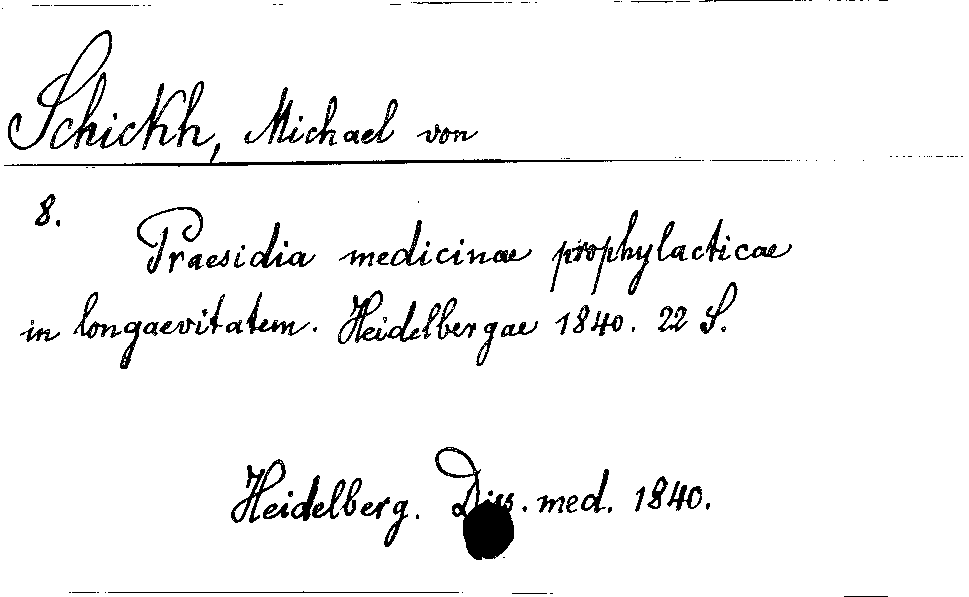 Schickh, Michael von
8.
Praesidia medicinae prophylacticae
in longaevitatem. Heidelbergae 1840. 22 S.
Heidelberg. Diss. med. 1840.